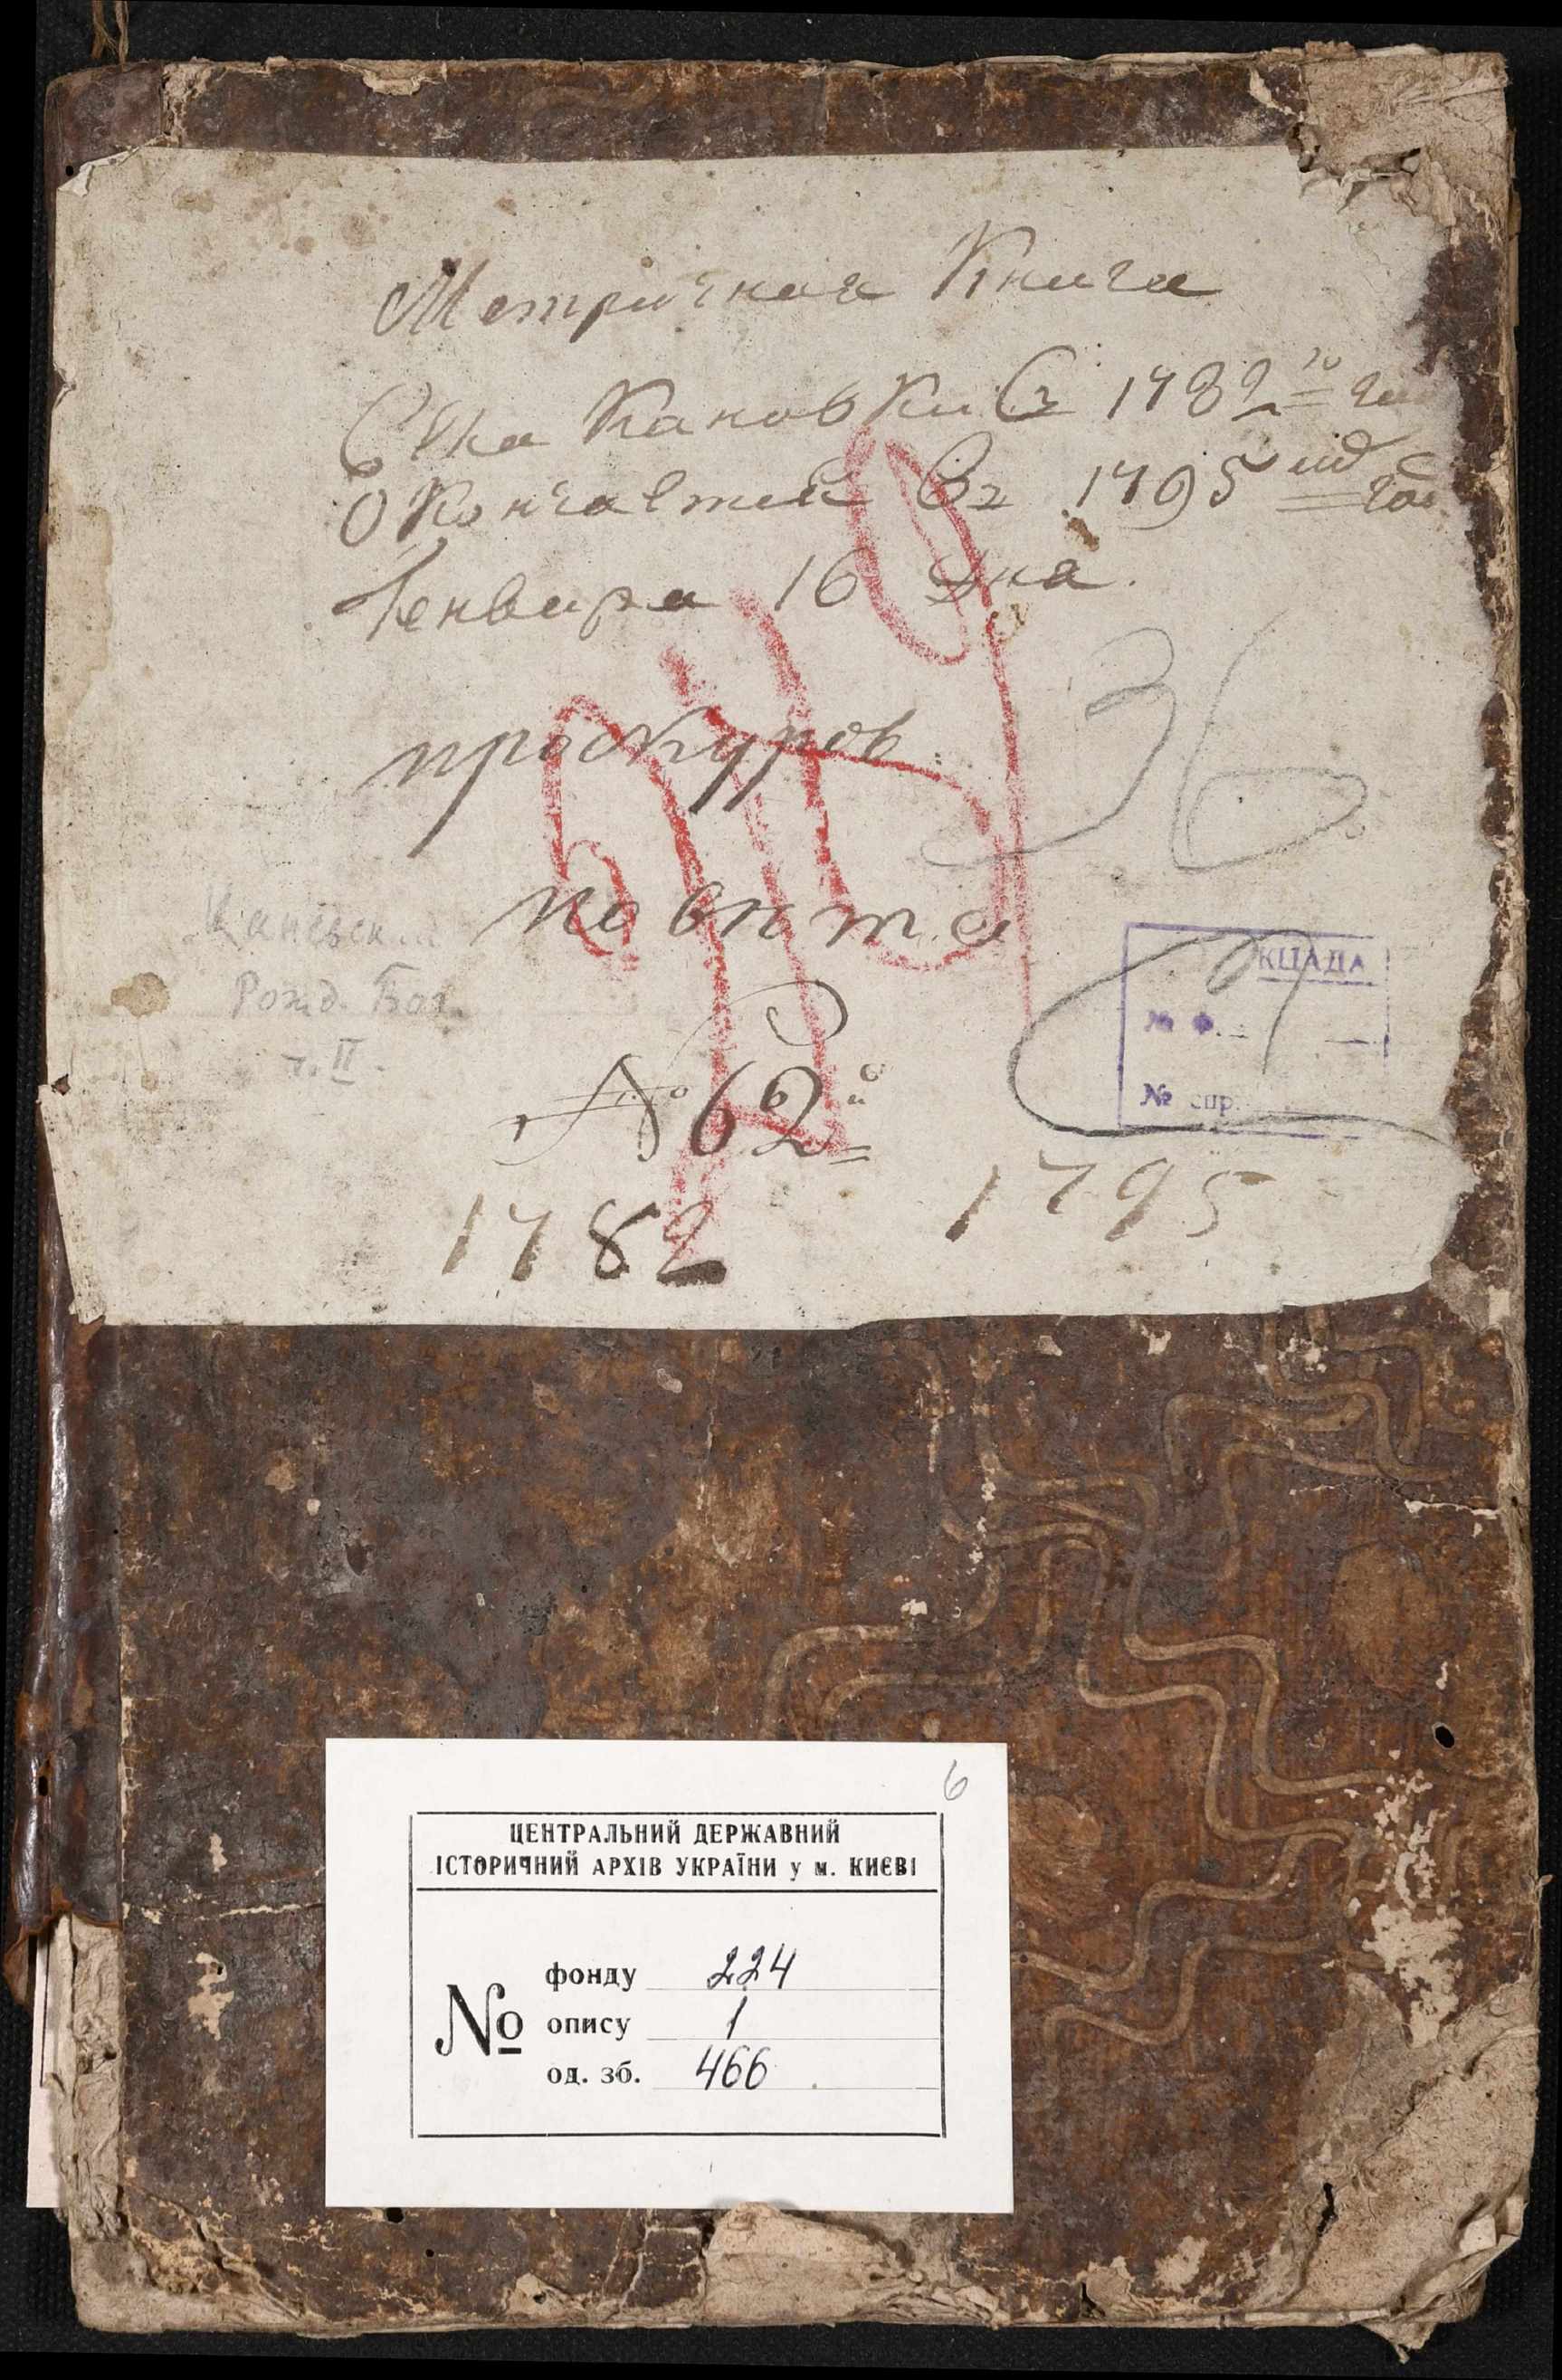 Метричная Книга
Села Кановки Съ 1782 го года
Окончается Въ 1795
Генваря 16 дня.
проскуров.
повита
36
Рожд. Бог.
т. II.
КЦАДА
№ Ф.
№ спр.
№ 62й
1782 1795
6
ЦЕНТРАЛЬНИЙ ДЕРЖАВНИЙ
ІСТОРИЧНИЙ АРХІВ УКРАЇНИ у м. КИЄВІ
№
фонду 224
опису 1
од. зб. 466